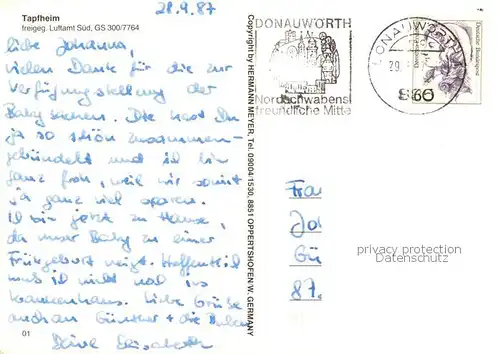 28.9.87
Tapfheim
freigeg. Luftamt Süd, GS 300/7764
liebe Johanna,
vielen Dank für die zur
Verfügungstellung der
Babysachen. Die hast Du
ja so schön zusammen-
gebündelt und ich bin
ganz froh, weil wir somit
ja ganz viel sparen.
Ich bin jetzt zu Hause,
da unser Baby zu einer
Frühgeburt neigt. Hoffentlich
muß ich nicht mal ins
Krankenhaus. Liebe Grüße
auch an Günther + die
Deine Elisabeth
01
Copyright by HERMANN MEYER, Tel. 09004/1530, 8851 OPPERTSHOFEN W. GERMANY
DONAUWÖRTH
Nordschwabens
freundliche Mitte
DONAUWÖRTH
29.
8860
Deutsche Bundespost
Frau
Jo
Gü
87.
privacy protection
Datenschutz